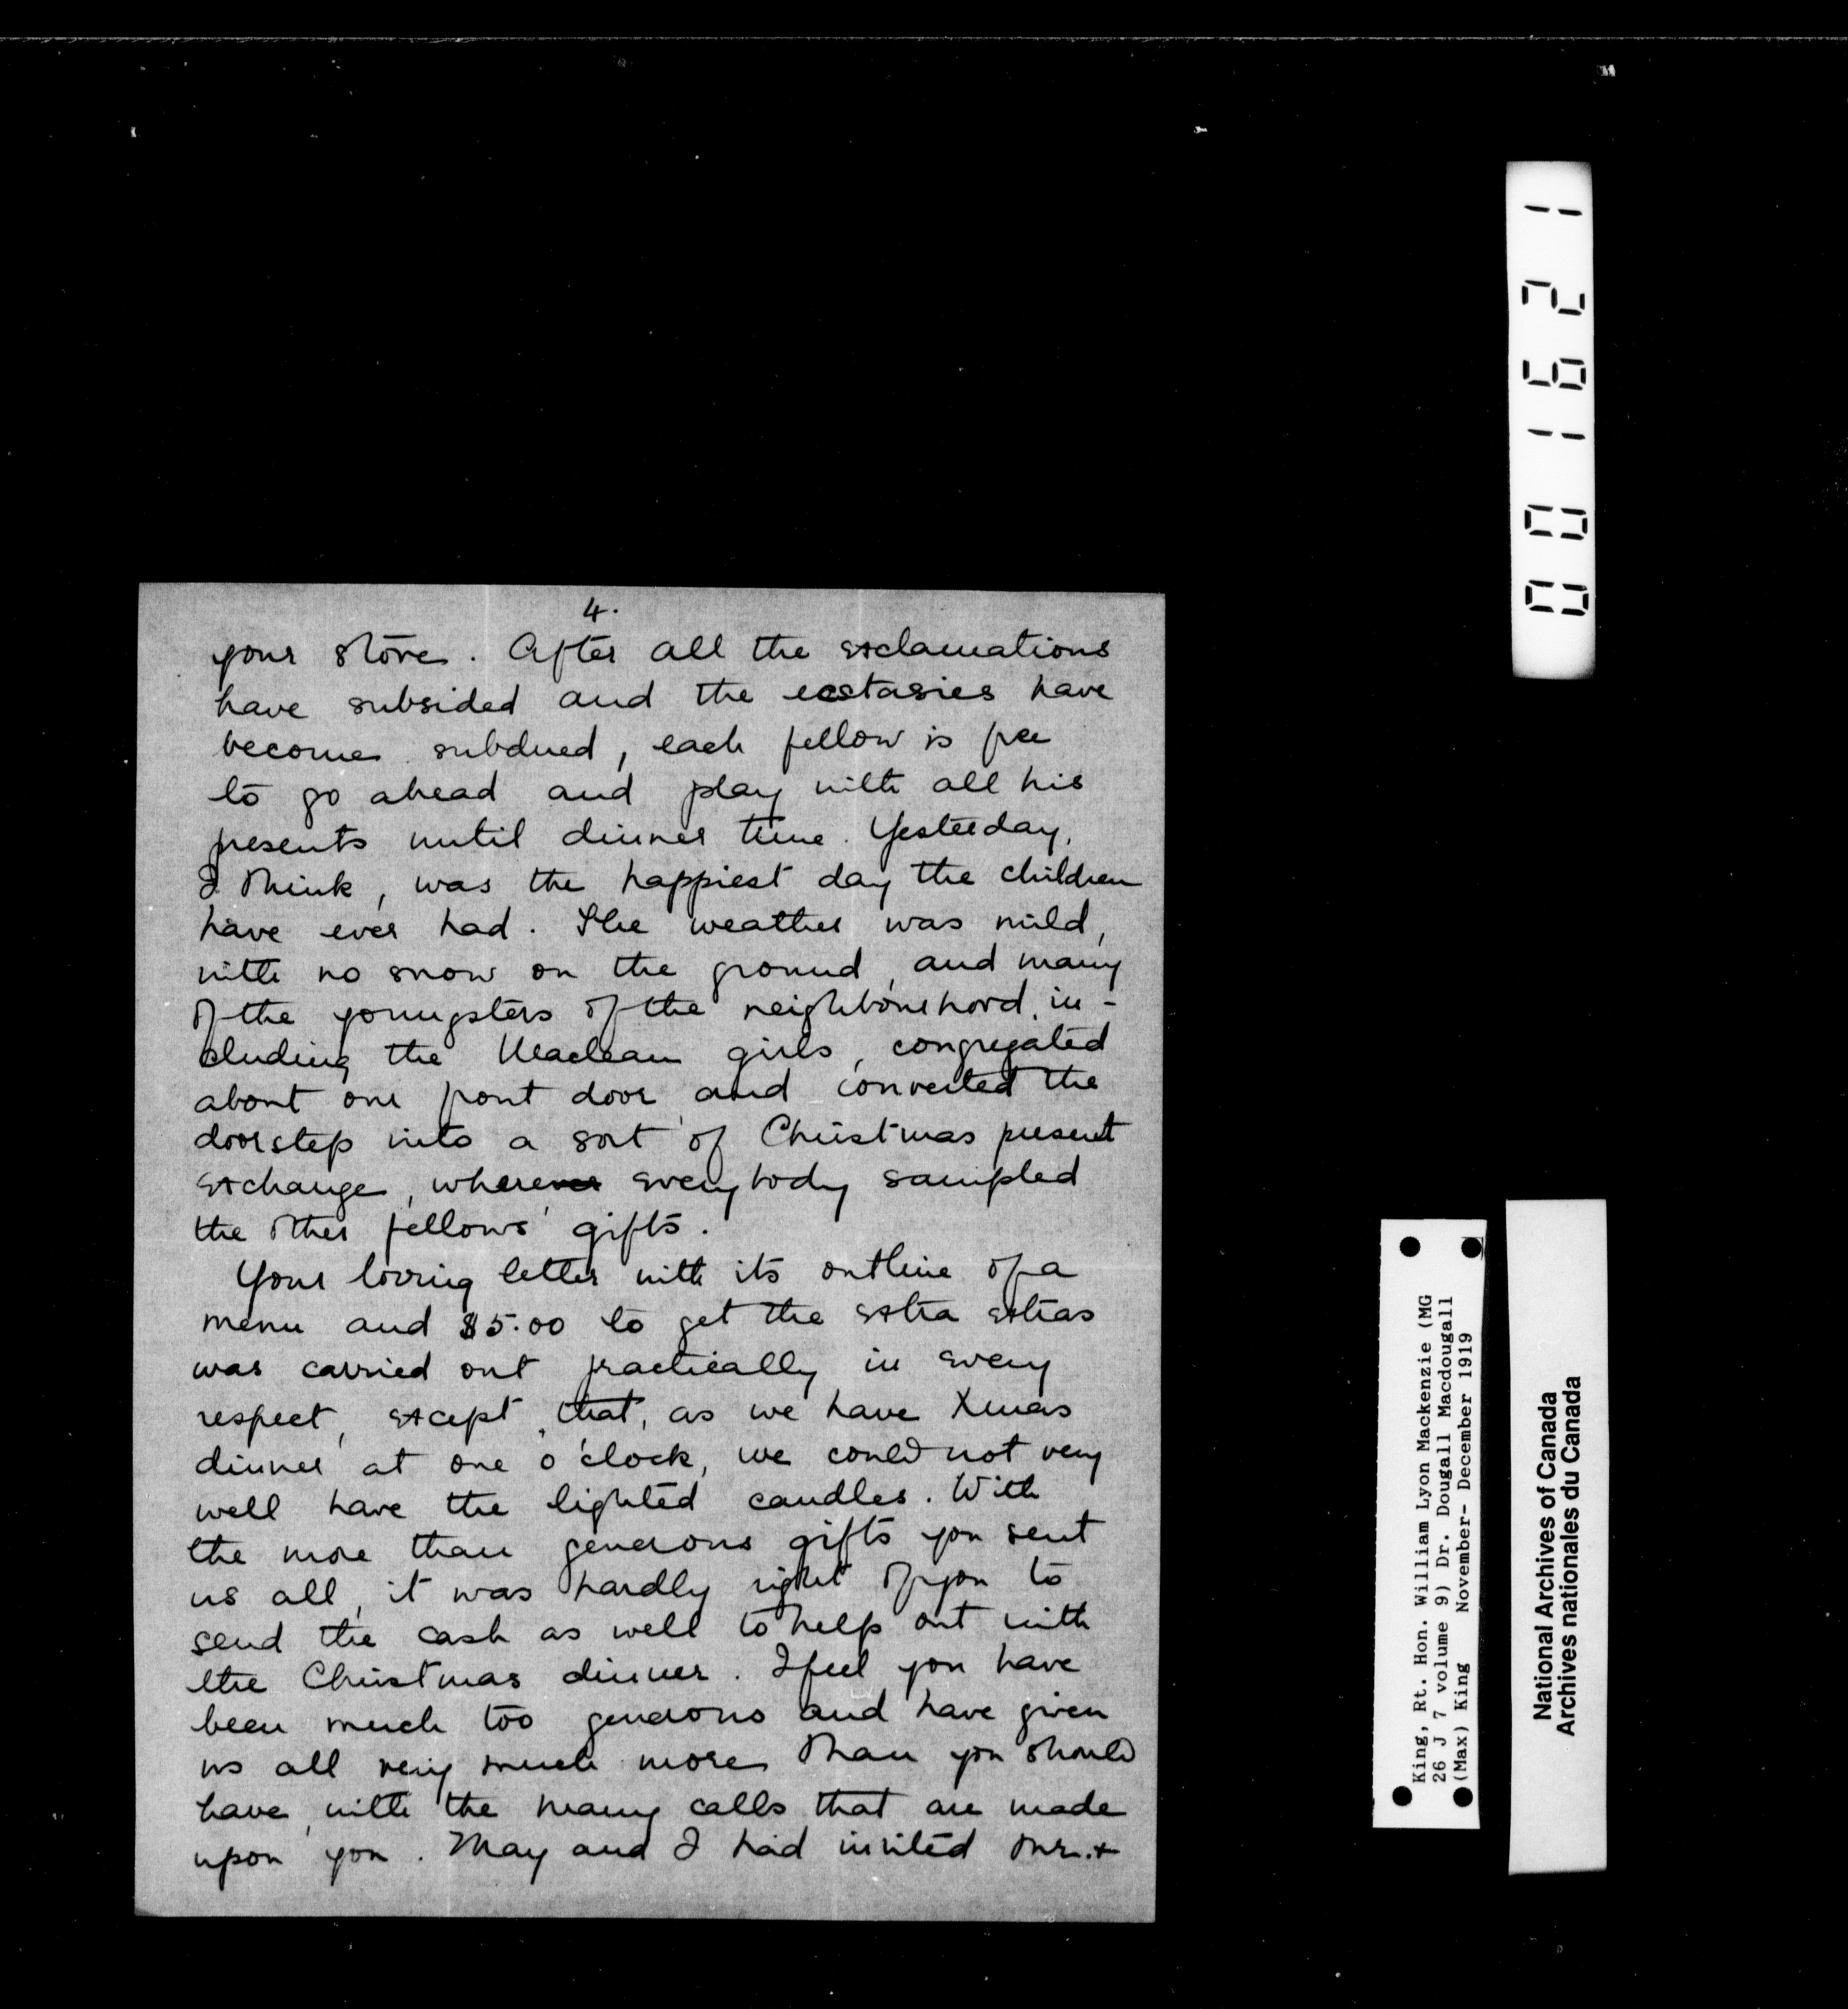 4.
your store. After all the exclamations
have subsided and the ecstasies have
become subdued, each fellow is free
to go ahead and play with all his
presents until dinner time. Yesterday,
I think, was the happiest day the children
have ever had. The weather was mild,
with no snow on the ground, and many
of the youngsters of the neighbourhood, in-
cluding the Maclean girls, congregated
about our front door, and converted the
doorstep into a sort of Christmas present
exchange, where everybody sampled
the other fellows' gifts.
Your loving letter with its outline of a
menu and $5.00 to get the extra extras
was carried out practically in every
respect, except, that, as we have Xmas
dinner at one o'clock, we could not very
well have the lighted candles. With
the more than generous gifts you sent
us all, it was hardly right of you to
send the cash as well to help out with
the Christmas dinner. I feel you have
been much too generous and have given
us all very much more than you should
have, with the many calls that are made
upon you. May and I had invited Mr. +
001621
King, Rt. Hon. William Lyon Mackenzie (MG
26 J 7 volume 9) Dr. Dougall Macdougall
(Max) King November- December 1919
National Archives of Canada
Archives nationales du Canada